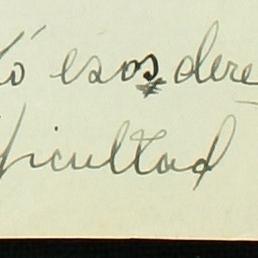 ó esos dere
ficultad